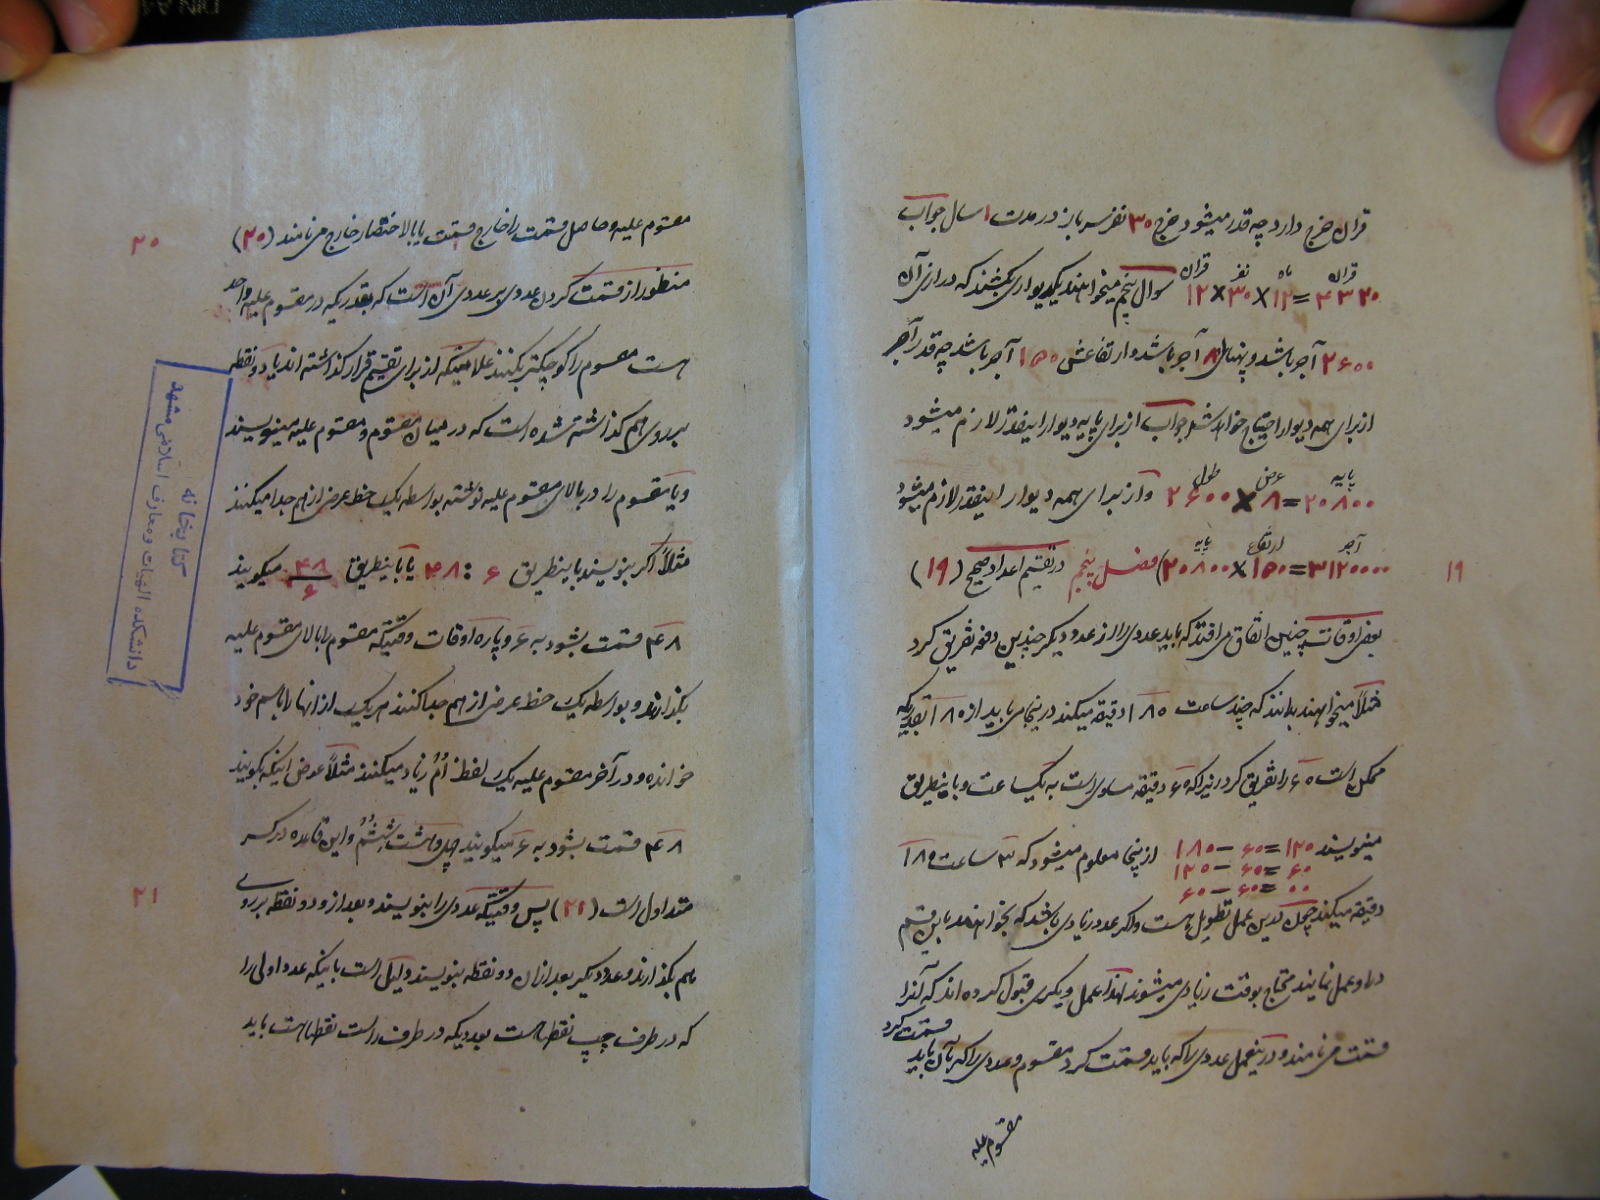 قران خرج دارد چه قدر میشود خرج ۳۰ نفر سرباز در مدت ۱ سال جواب
قران ماه نفر قران
۴۳۲۰ = ۱۲ × ۳۰ × ۱۲ سوال پنجم میخواهند یک دیواری بکشند که درازی آن
۲۶۰۰ آجر باشد و پهنای ۸ آجر باشد و ارتفاعش ۱۵۰ آجر باشد چه قدر آجر
از برای همه دیوار احتیاج خواهد شد جواب از برای پایه دیوار اینقدر لازم میشود
پایه عرض طول
۲۰۸۰۰ = ۸ × ۲۶۰۰ و از برای همه دیوار اینقدر لازم میشود
آجر ارتفاع پایه
۳۱۲۰۰۰۰ = ۱۵۰ × ۲۰۸۰۰) فصل پنجم در تقسیم اعداد صحیح (۱۹)
۱۹
بعض اوقات چنین اتفاق می افتد که باید عددی را از عدد دیگر چندین دفعه تفریق کرد
مثلاً میخواهند بدانند که چند ساعت ۱۸۰ دقیقه میکند در اینجا می باید از ۱۸۰ آنقدریکه
ممکن است ۶۰ را تفریق کرد زیرا که ۶۰ دقیقه مساوی است به یکساعت و باینطریق
مینویسند ۱۲۰ = ۶۰ − ۱۸۰ از اینجا معلوم میشود که ۳ ساعت ۱۸۰
۶۰ = ۶۰ − ۱۲۰
۰۰ = ۶۰ − ۶۰
دقیقه میکند چون که این عمل تطویل است و اگر عدد زیادی باشد که بخواهند باین قسم
در او عمل نمایند محتاج بوقت زیادی میشوند لهذا عمل دیگری قبول کرده اند که آنرا
قسمت می نامند و در اینعمل عددی را که باید قسمت کرد مقسوم و عددی را که بآن باید
قسمت کرد
مقسوم علیه
مقسوم علیه و حاصل قسمت را خارج قسمت یا بالاختصار خارج می نامند (۲۰)
۲۰
منظور از قسمت کردن عددی بر عددی آن است که بقدریکه در مقسوم علیه واحد
هست مقسوم را کوچکتر بکنند علامتیکه از برای تقسیم قرار گذاشته اند یا دو نقطه
بر روی هم گذاشته شده است که در میان مقسوم و مقسوم علیه مینویسند
و یا مقسوم را در بالای مقسوم علیه نوشته بواسطه یک خط عرض از هم جدا میکنند
مثلاً اگر بنویسند باینطریق ۶ : ۴۸ یا باینطریق ۴۸/۶ میگویند
۴۸ قسمت بشود به ۶ و پاره اوقات وقتیکه مقسوم را بالای مقسوم علیه
بگذارند و بواسطه یک خط عرض از هم جدا کنند هر یک از آنها را باسم خود
خوانده و در آخر مقسوم علیه یک لفظ اُم زیاد میکنند مثلاً عوض اینکه بگویند
۴۸ قسمت بشود به ۶ میگویند چهل و هشت ششُم و این قاعده در کسر
متداول است (۲۱) پس وقتیکه عددی را بنویسند و بعد از و دو نقطه بر روی
۲۱
هم بگذارند و عدد دیگر بعد از ان دو نقطه بنویسند دلیل است باینکه عدد اولی را
که در طرف چپ نقطهاست بعددیکه در طرف راست نقطهاست باید
کتابخانه
دانشکده الهیات و معارف اسلامی مشهد